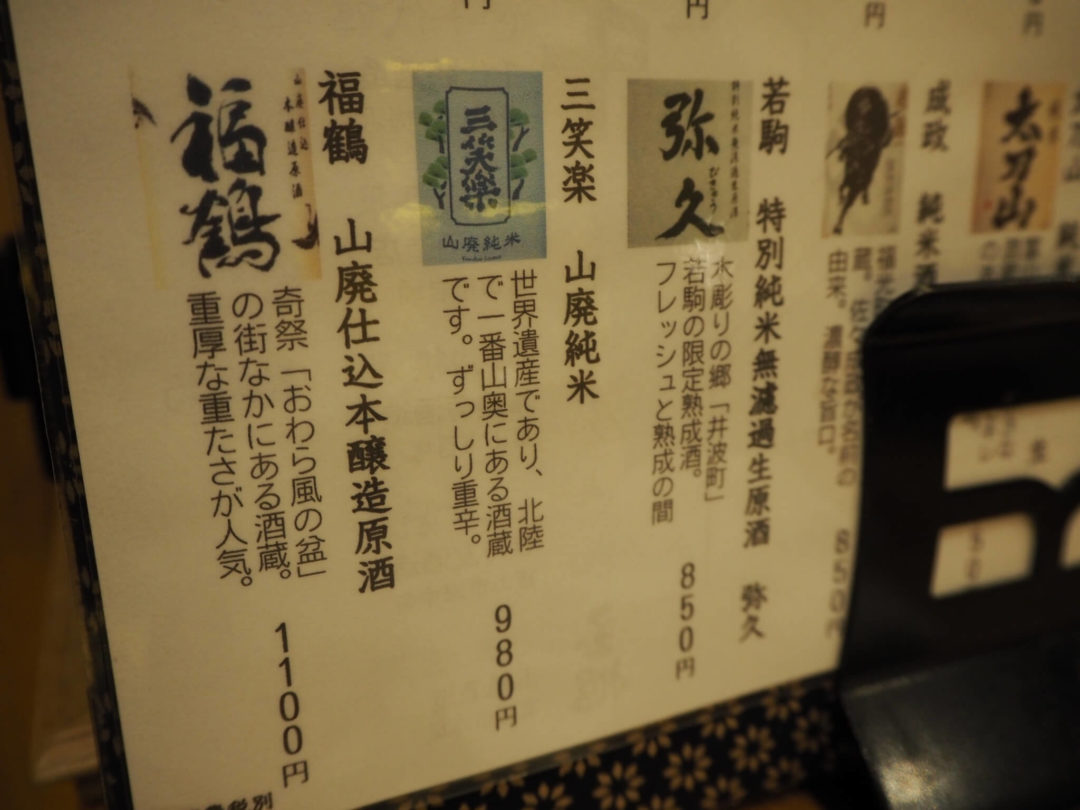 円
円
円
円
太刀山
成政 純米酒
由来。濃醇な旨口。
850円
若駒 特別純米無濾過生原酒 弥久
弥久
びきゅう
水彫りの郷「井波町」
若駒の限定熟成酒。
フレッシュと熟成の間
850円
三笑楽 山廃純米
三笑楽
山廃純米
世界遺産であり、北陸
で一番山奥にある酒蔵
です。ずっしり重辛。
980円
福鶴 山廃仕込本醸造原酒
山廃仕込
本醸造原酒
福鶴
奇祭「おわら風の盆」
の街なかにある酒蔵。
重厚な重たさが人気。
1100円
税別